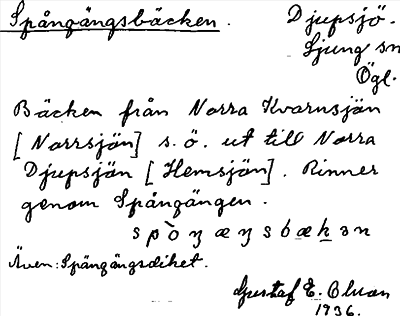 Spångängsbäcken.
Djupsjö.
Ljung sn
Ögl.
Bäcken från Norra Kvarnsjön
[Norrsjön] s.ö. ut till Norra
Djupsjön [Hemsjön]. Rinner
genom Spångängen.
Även: Spångängsdiket.
Gustaf E. Olson
1936.